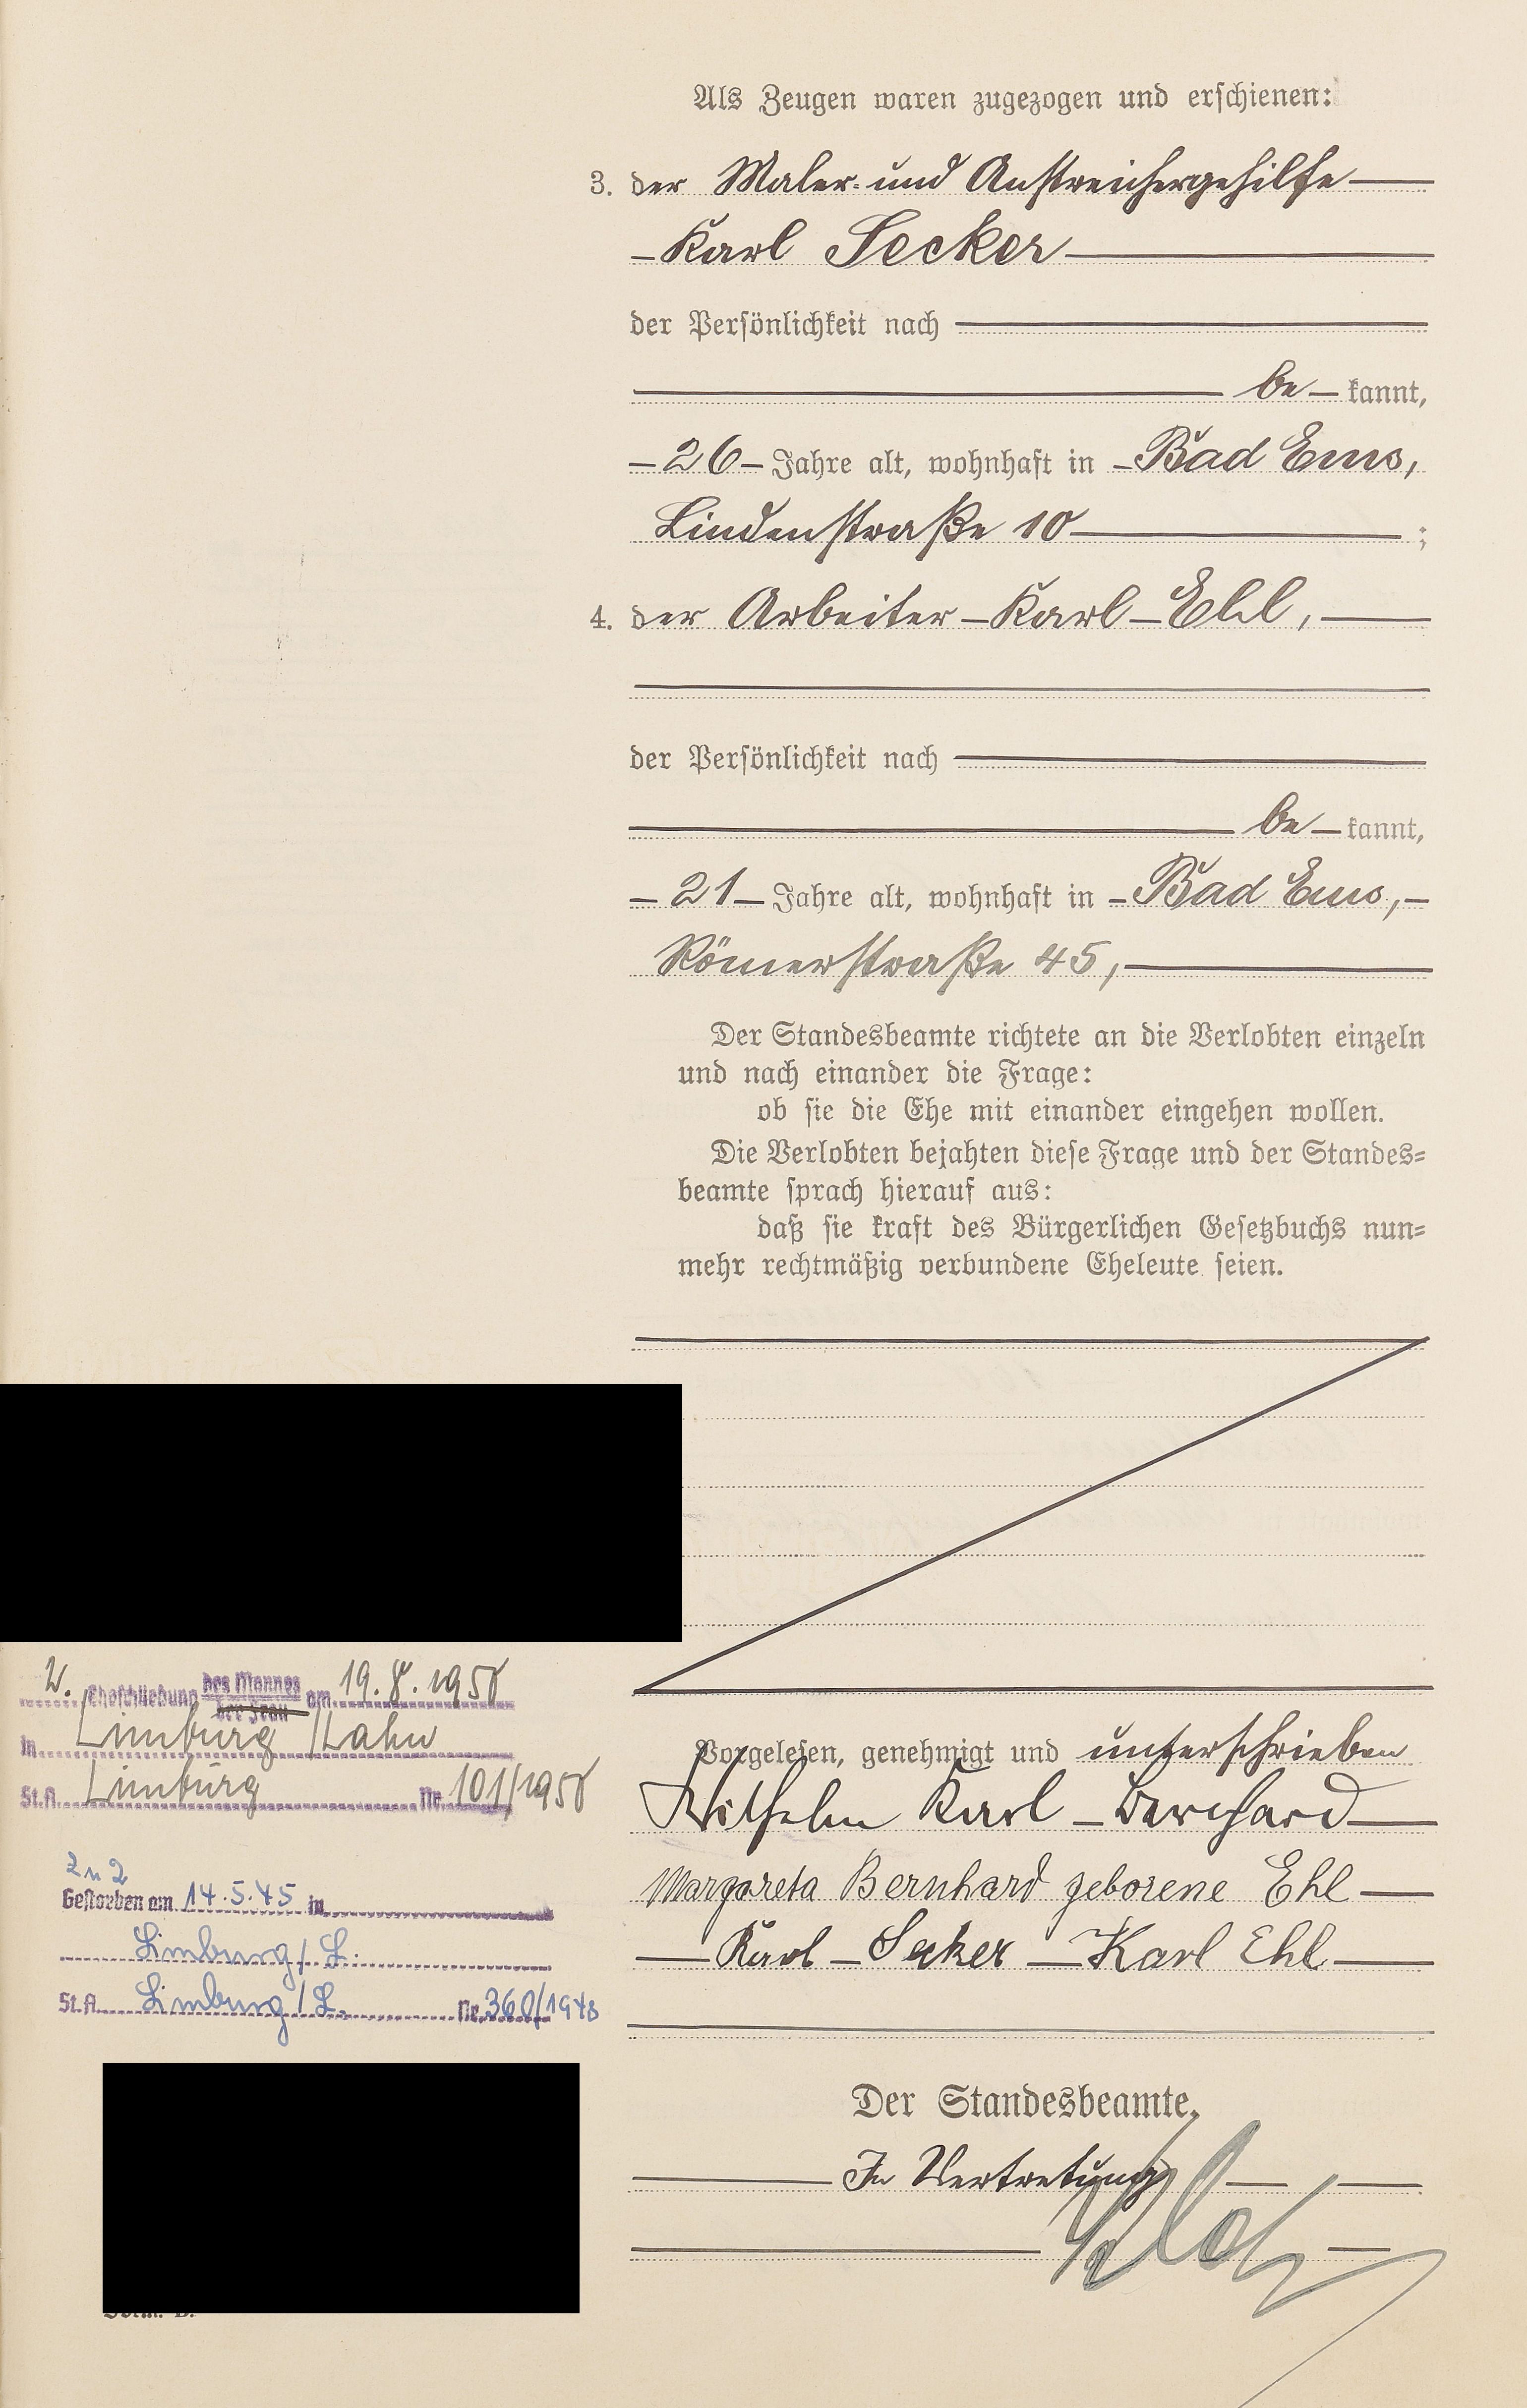 Als Zeugen waren zugezogen und erschienen:
3. der Maler- und Anstreichergehilfe
Karl Secker
der Persönlichkeit nach
be kannt,
26 Jahre alt, wohnhaft in Bad Ems,
Lindenstraße 10 ;
4. der Arbeiter Karl Ehl,
der Persönlichkeit nach
be kannt,
21 Jahre alt, wohnhaft in Bad Ems,
Römerstraße 45,
Der Standesbeamte richtete an die Verlobten einzeln
und nach einander die Frage:
ob sie die Ehe mit einander eingehen wollen.
Die Verlobten bejahten diese Frage und der Standes-
beamte sprach hierauf aus:
daß sie kraft des Bürgerlichen Gesetzbuchs nun-
mehr rechtmäßig verbundene Eheleute seien.
Vorgelesen, genehmigt und unterschrieben
Wilhelm Karl Bernhard
Margareta Bernhard geborene Ehl
Karl Secker Karl Ehl
Der Standesbeamte.
In Vertretung
2. Eheschließung des Mannes der Frau am
in Limburg/Lahn
St.A. Limburg Nr.
Zu 2
Gestorben am 14.5.45 in
Limburg/L.
St.A. Limburg/L. Nr. 360/1948